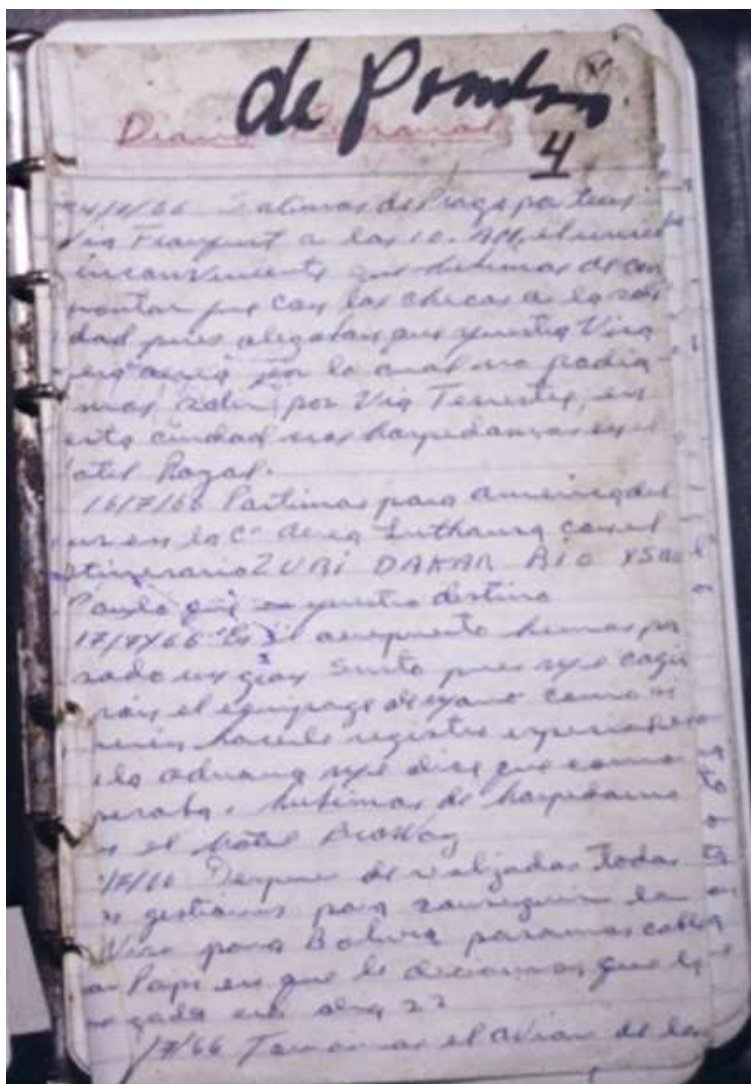 de Pombo
Diario Personal
4
14/7/66 Salimos de Praga por tren
Via Franfurt a las 10. AM, el unico
inconveniente que tubimos de con
frontar fue con los checos a la sali
dad pues alegaban que nuestra Visa
era aerea por lo cual no podia
mos salir por Via Terrestre, en
esta ciudad nos hospedamos en el
otel Royal.
16/7/66 Partimos para America del
sur en la Cª Aerea Lufthansa con el
itinerario ZURI DAKAR RIO Y SAO
Paulo que es nuestro destino
17/7/66 En el aeropuerto hemos pa
sado un gran Susto pues me cogie
ron el equipage de mano como
hacerle registro
la aduana que como
hubimos de hospedarnos
en el hotel BroWay
/7/66 Despues de realizadas todas
las gestiones para conseguir la
Visa para Bolivia pasamos cable
a Papi en que le deciamos que
era dia 22
/7/66 Tomamos el avion de la